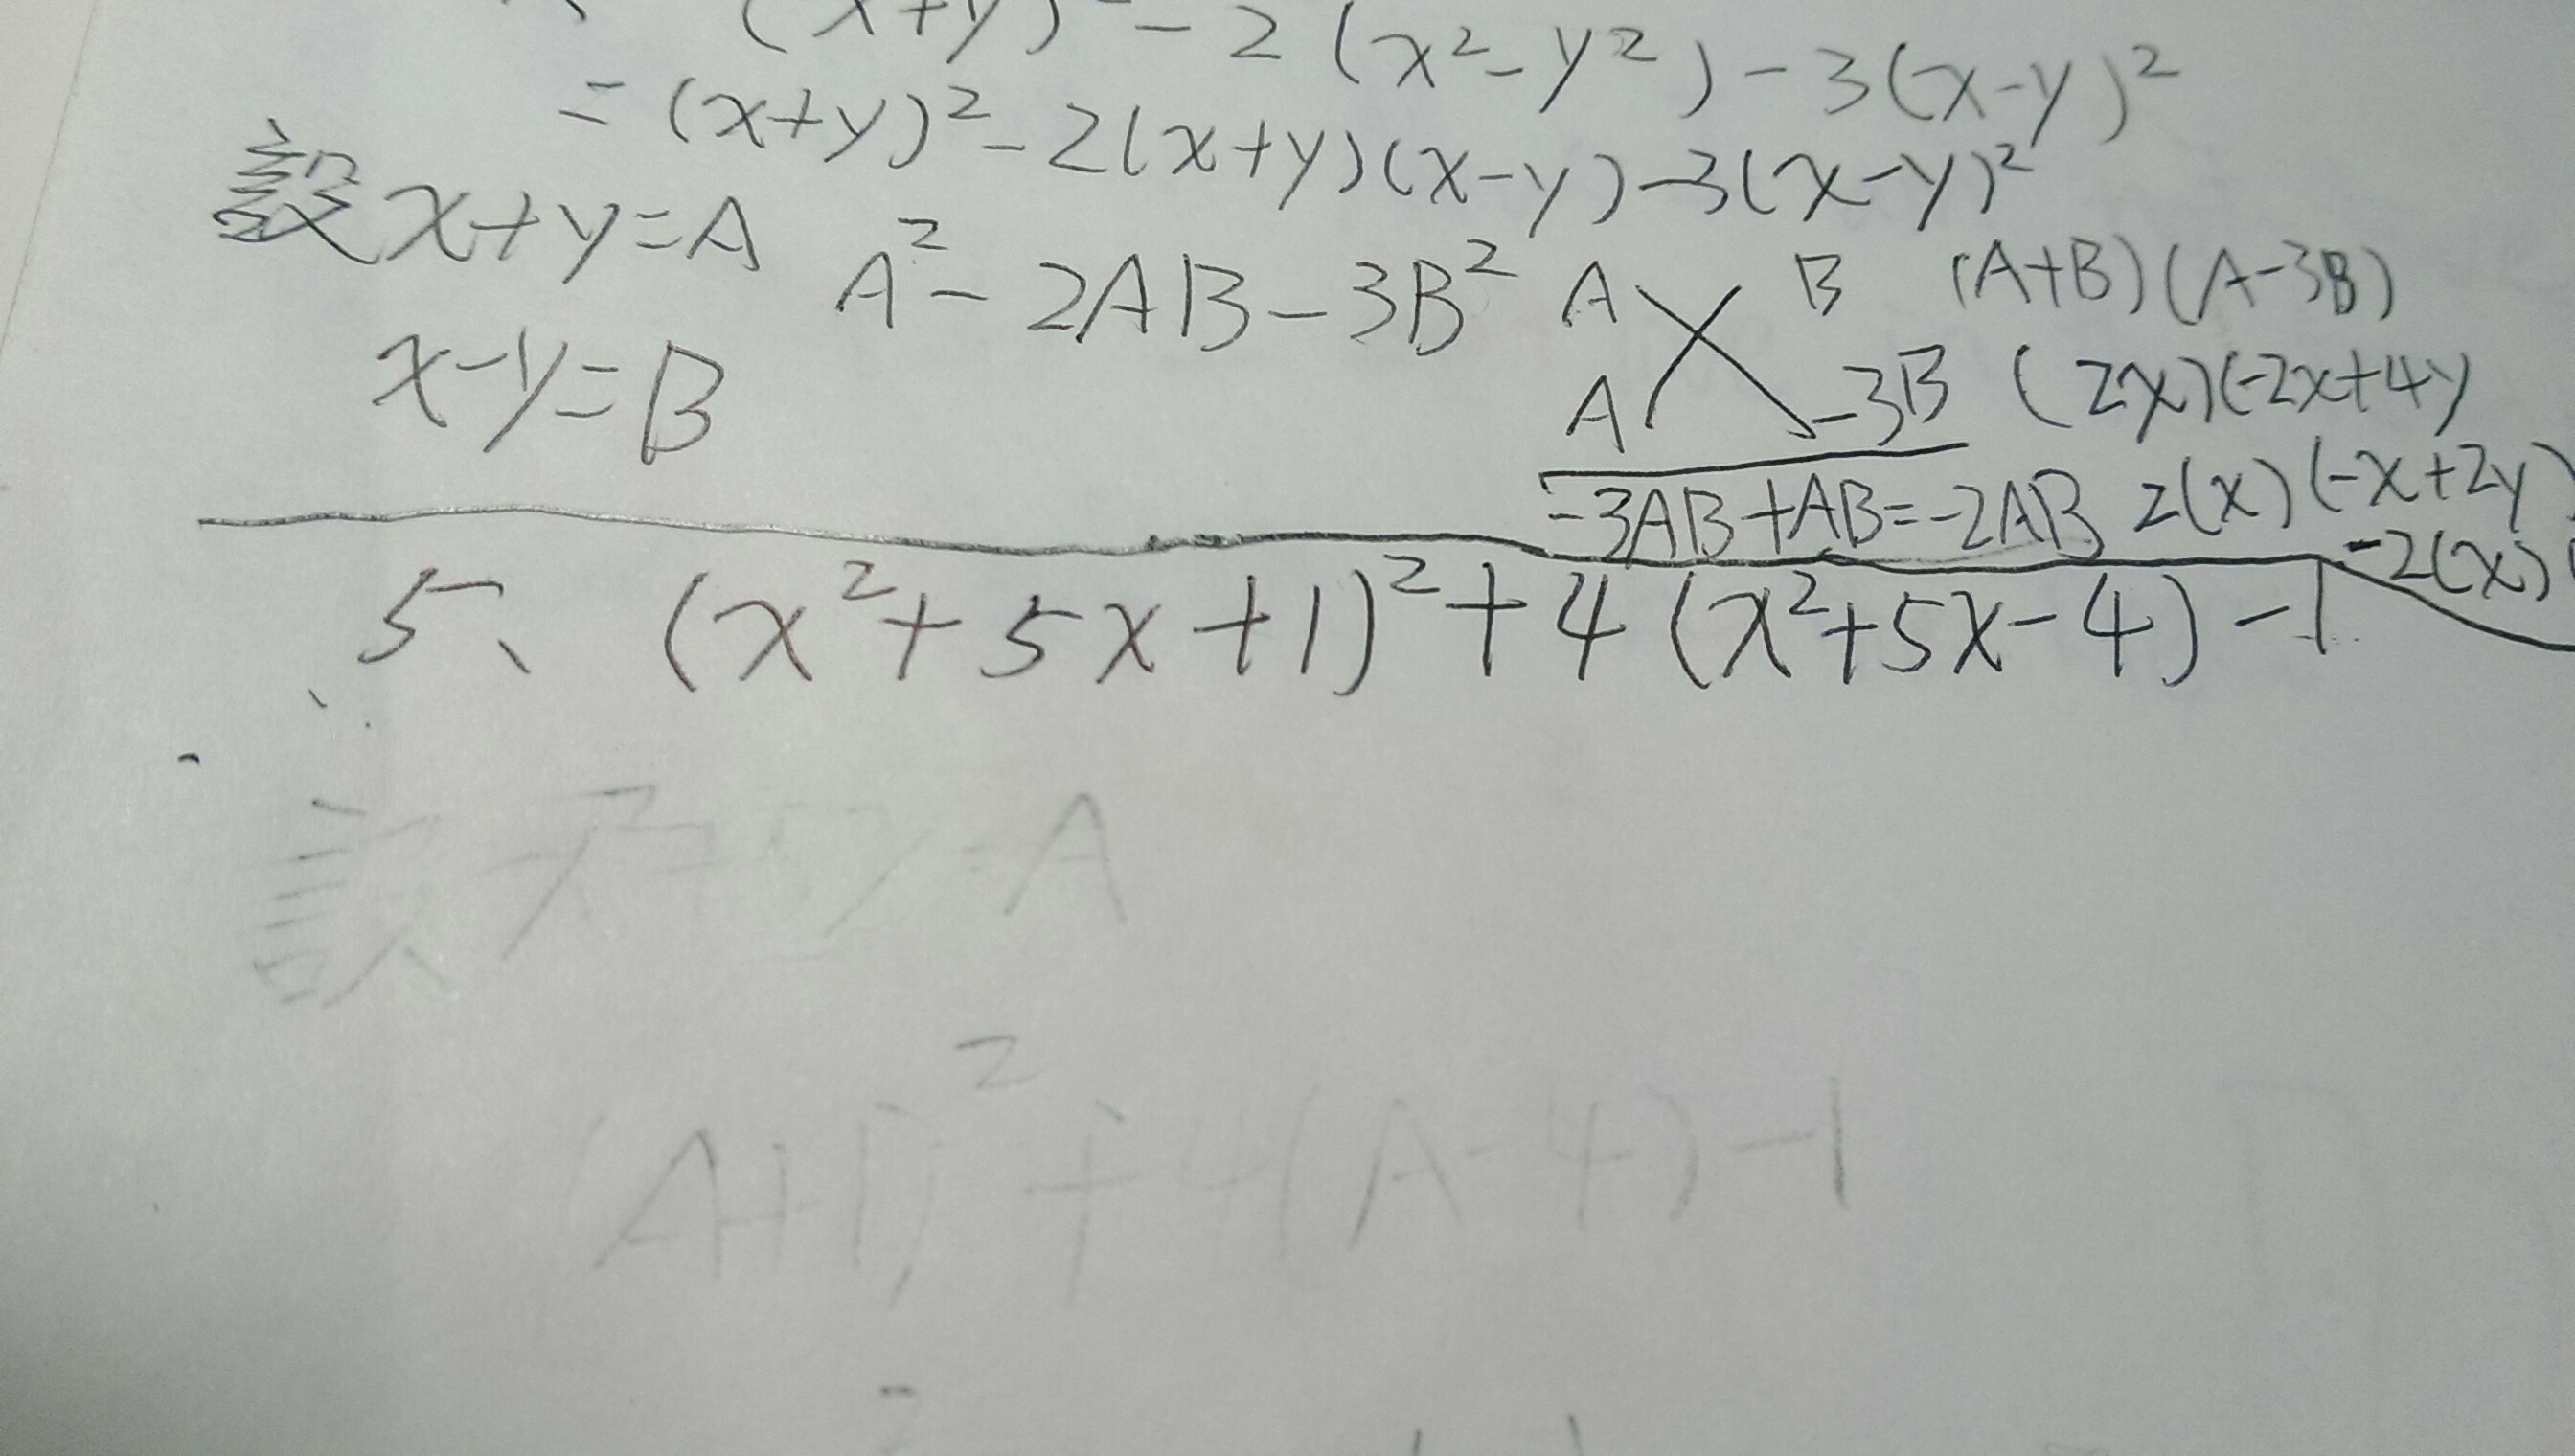 (x+y)² - 2(x²-y²) - 3(x-y)²
= (x+y)² - 2(x+y)(x-y) - 3(x-y)²
設 x+y=A
A² - 2AB - 3B²
A B
(A+B)(A-3B)
x-y=B
A -3B
(2x)(-2x+4y
-3AB+AB=-2AB
2(x)(-x+2y)
-2(x)(
5、 (x²+5x+1)²+4(x²+5x-4)-1
設 =A
(A+1)²+4(A-4)-1